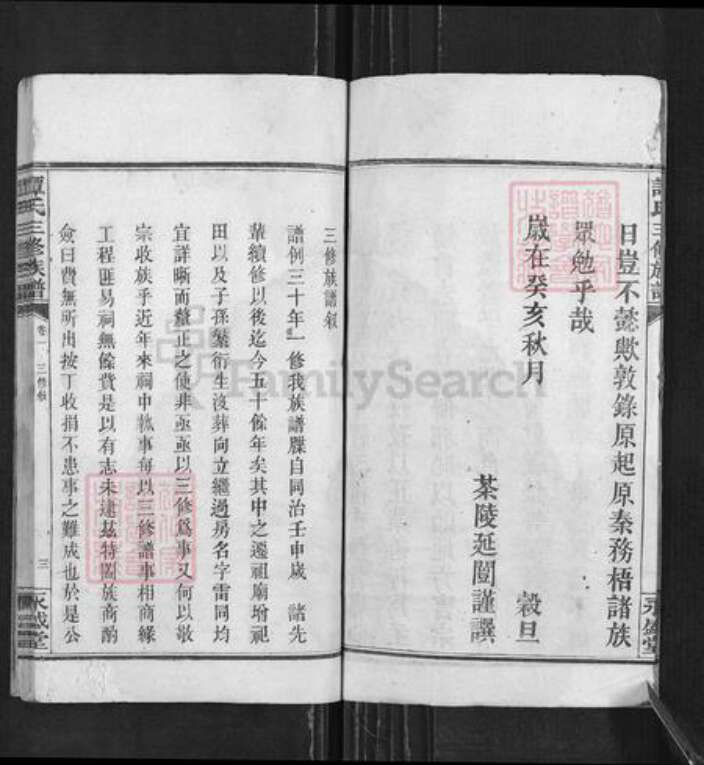 譚氏三修族譜
永盛堂
日豈不懿歟敦錄原起原秦務梧諸族
眾勉乎哉
歲在癸亥秋月
穀旦
茶陵延闓謹譔
三修族譜叙
譜例三十年一修我族譜牒自同治壬申歲 諸先
輩續修以後迄今五十餘年矣其中之遷祖廟增祀
田以及子孫蕃衍生沒葬向立繼過房名字雷同均
宜詳晰而釐正之使非亟亟以三修爲事又何以敬
宗收族乎近年來祠中執事每以三修譜事相商緣
工程匪易祠無餘費是以有志未逮茲特闔族商酌
僉曰費無所出按丁收捐不患事之難成也於是公
譚氏三修族譜
卷一
三修叙
三
永盛堂
FamilySearch